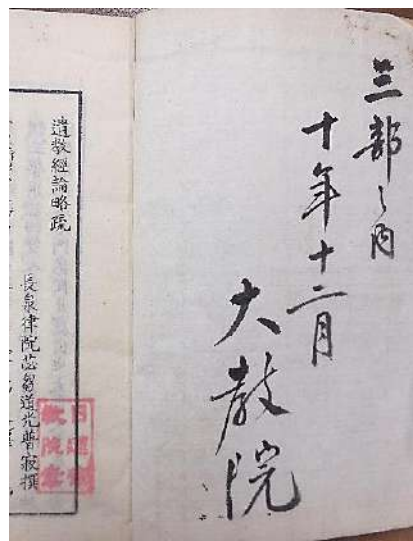 三部之内
十年十二月
大教院
遺教經論略疏
長泉律院苾芻道光普寂撰